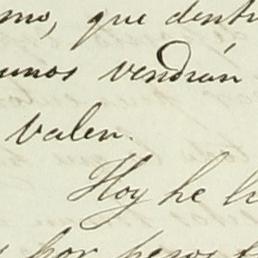 mo, que dentr
unos vendrán
valen.
Hoy he h
por pesos